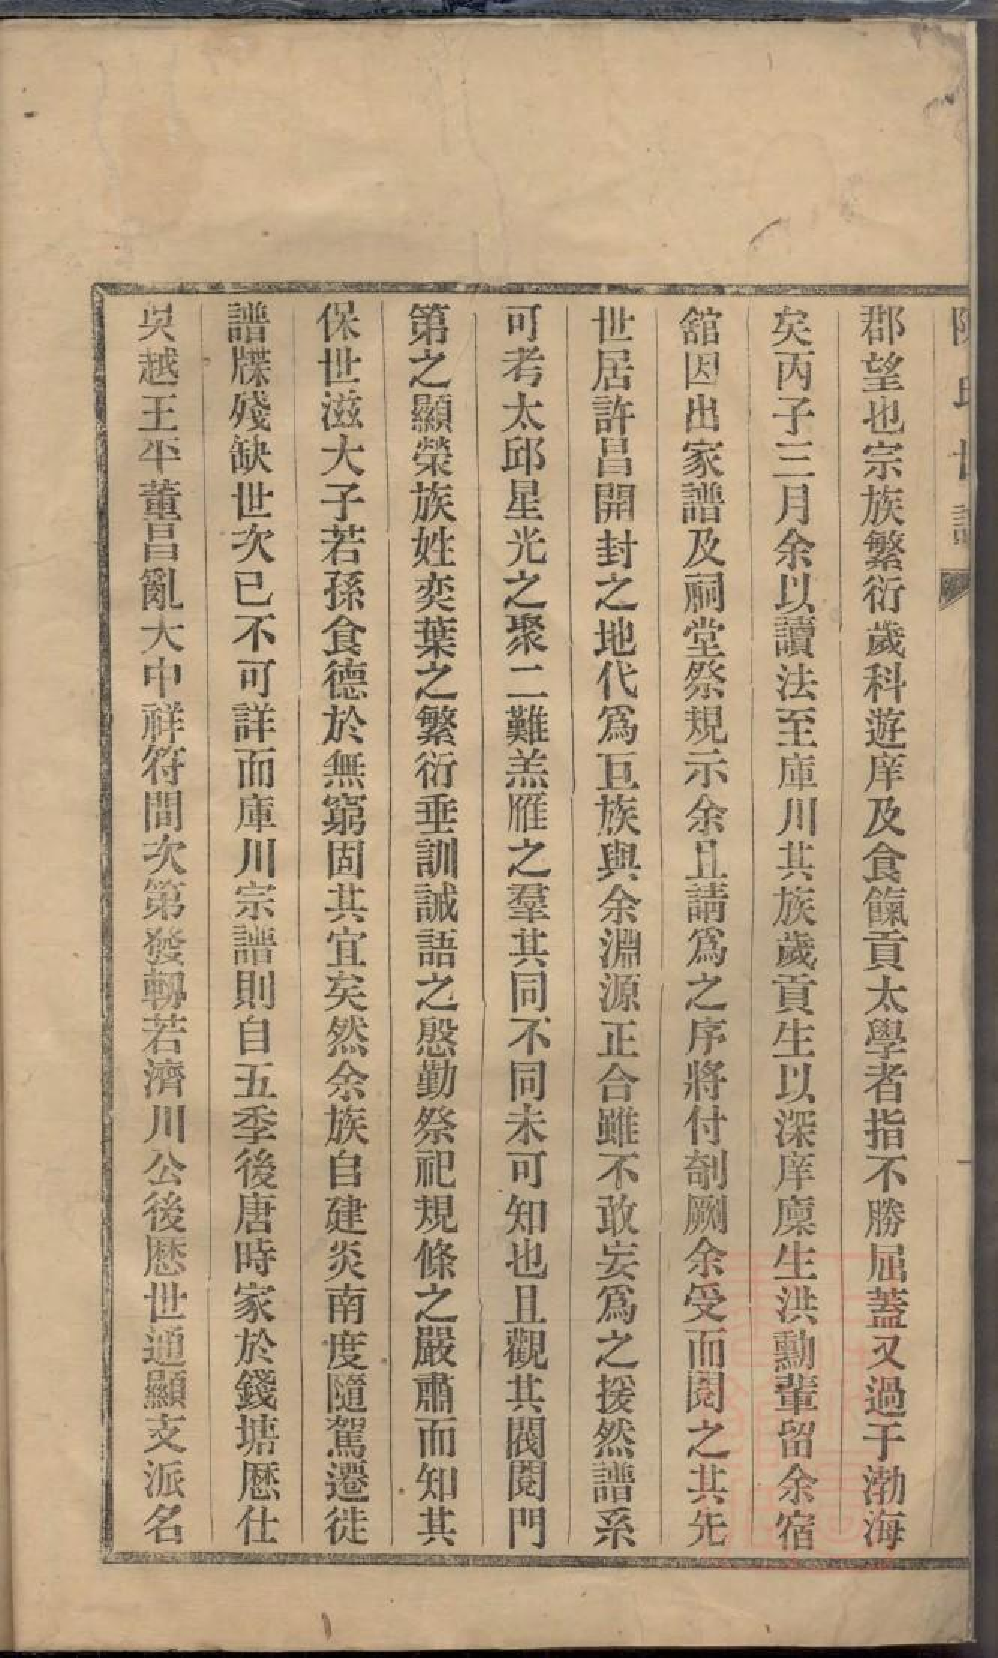 陳氏世譜
郡望也宗族繁衍歲科遊庠及食餼貢太學者指不勝屈蓋又過于渤海
矣丙子三月余以讀法至庫川其族歲貢生以深庠廩生洪勳輩留余宿
舘因出家譜及祠堂祭規示余且請爲之序將付剞劂余受而閱之其先
世居許昌開封之地代爲巨族與余淵源正合雖不敢妄爲之援然譜系
可考太邱星光之聚二難羔雁之羣其同不同未可知也且觀其閥閱門
第之顯榮族姓奕葉之繁衍垂訓誡語之慇勤祭祀規條之嚴肅而知其
保世滋大子若孫食德於無窮固其宜矣然余族自建炎南度隨駕遷徙
譜牒殘缺世次已不可詳而庫川宗譜則自五季後唐時家於錢塘歷仕
吳越王平董昌亂大中祥符間次第發軔若濟川公後歷世通顯支派名